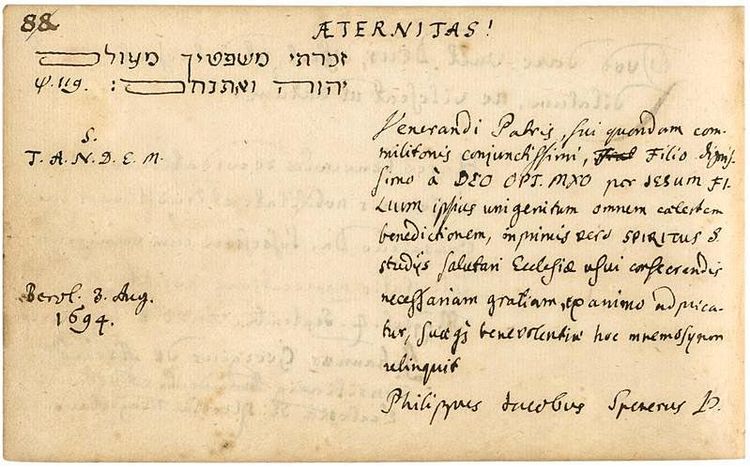 88
ÆTERNITAS!
זכרתי משפטיך מעולם
ψ. 119. יהוה ואתנחם :
S.
T. A. N. D. E. M.
Venerandi Patris, sui quondam com-
militonis conjunctissimi, Filio digniss-
simo à DEO OPT. MXO per JESUM FI-
LIUM ipsius unigenitum omnem cælestem
benedictionem, inprimis vero SPIRITUS S.
studijs salutari Ecclesiæ usui consecrandis
necessariam gratiam, ex animo adpreca-
tur, suæq; benevolentiæ hoc mnemosynon
relinquit
Philippus Jacobus Spenerus D.
Berol. 3. Aug.
1694.